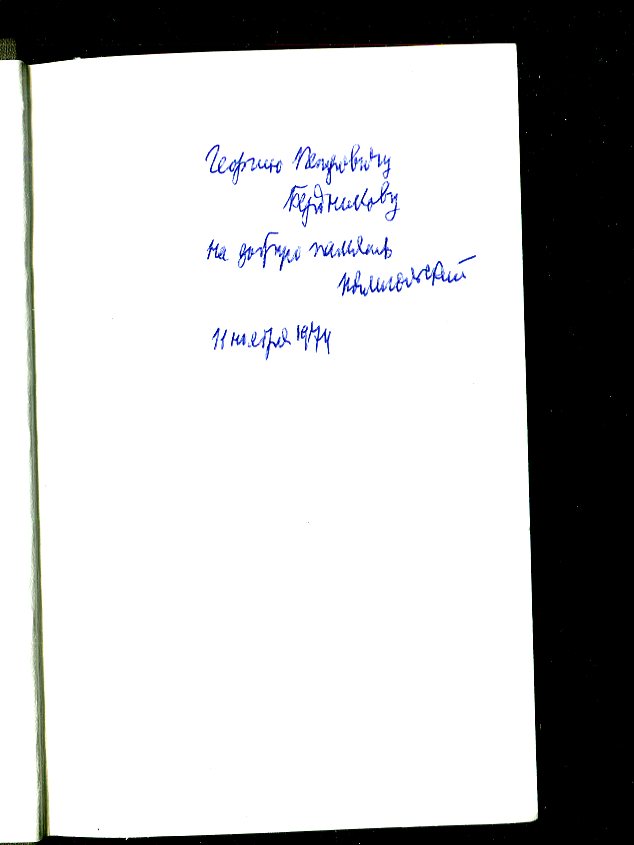 Георгию Петровичу
Бердникову
на добрую память
11 ноября 1974